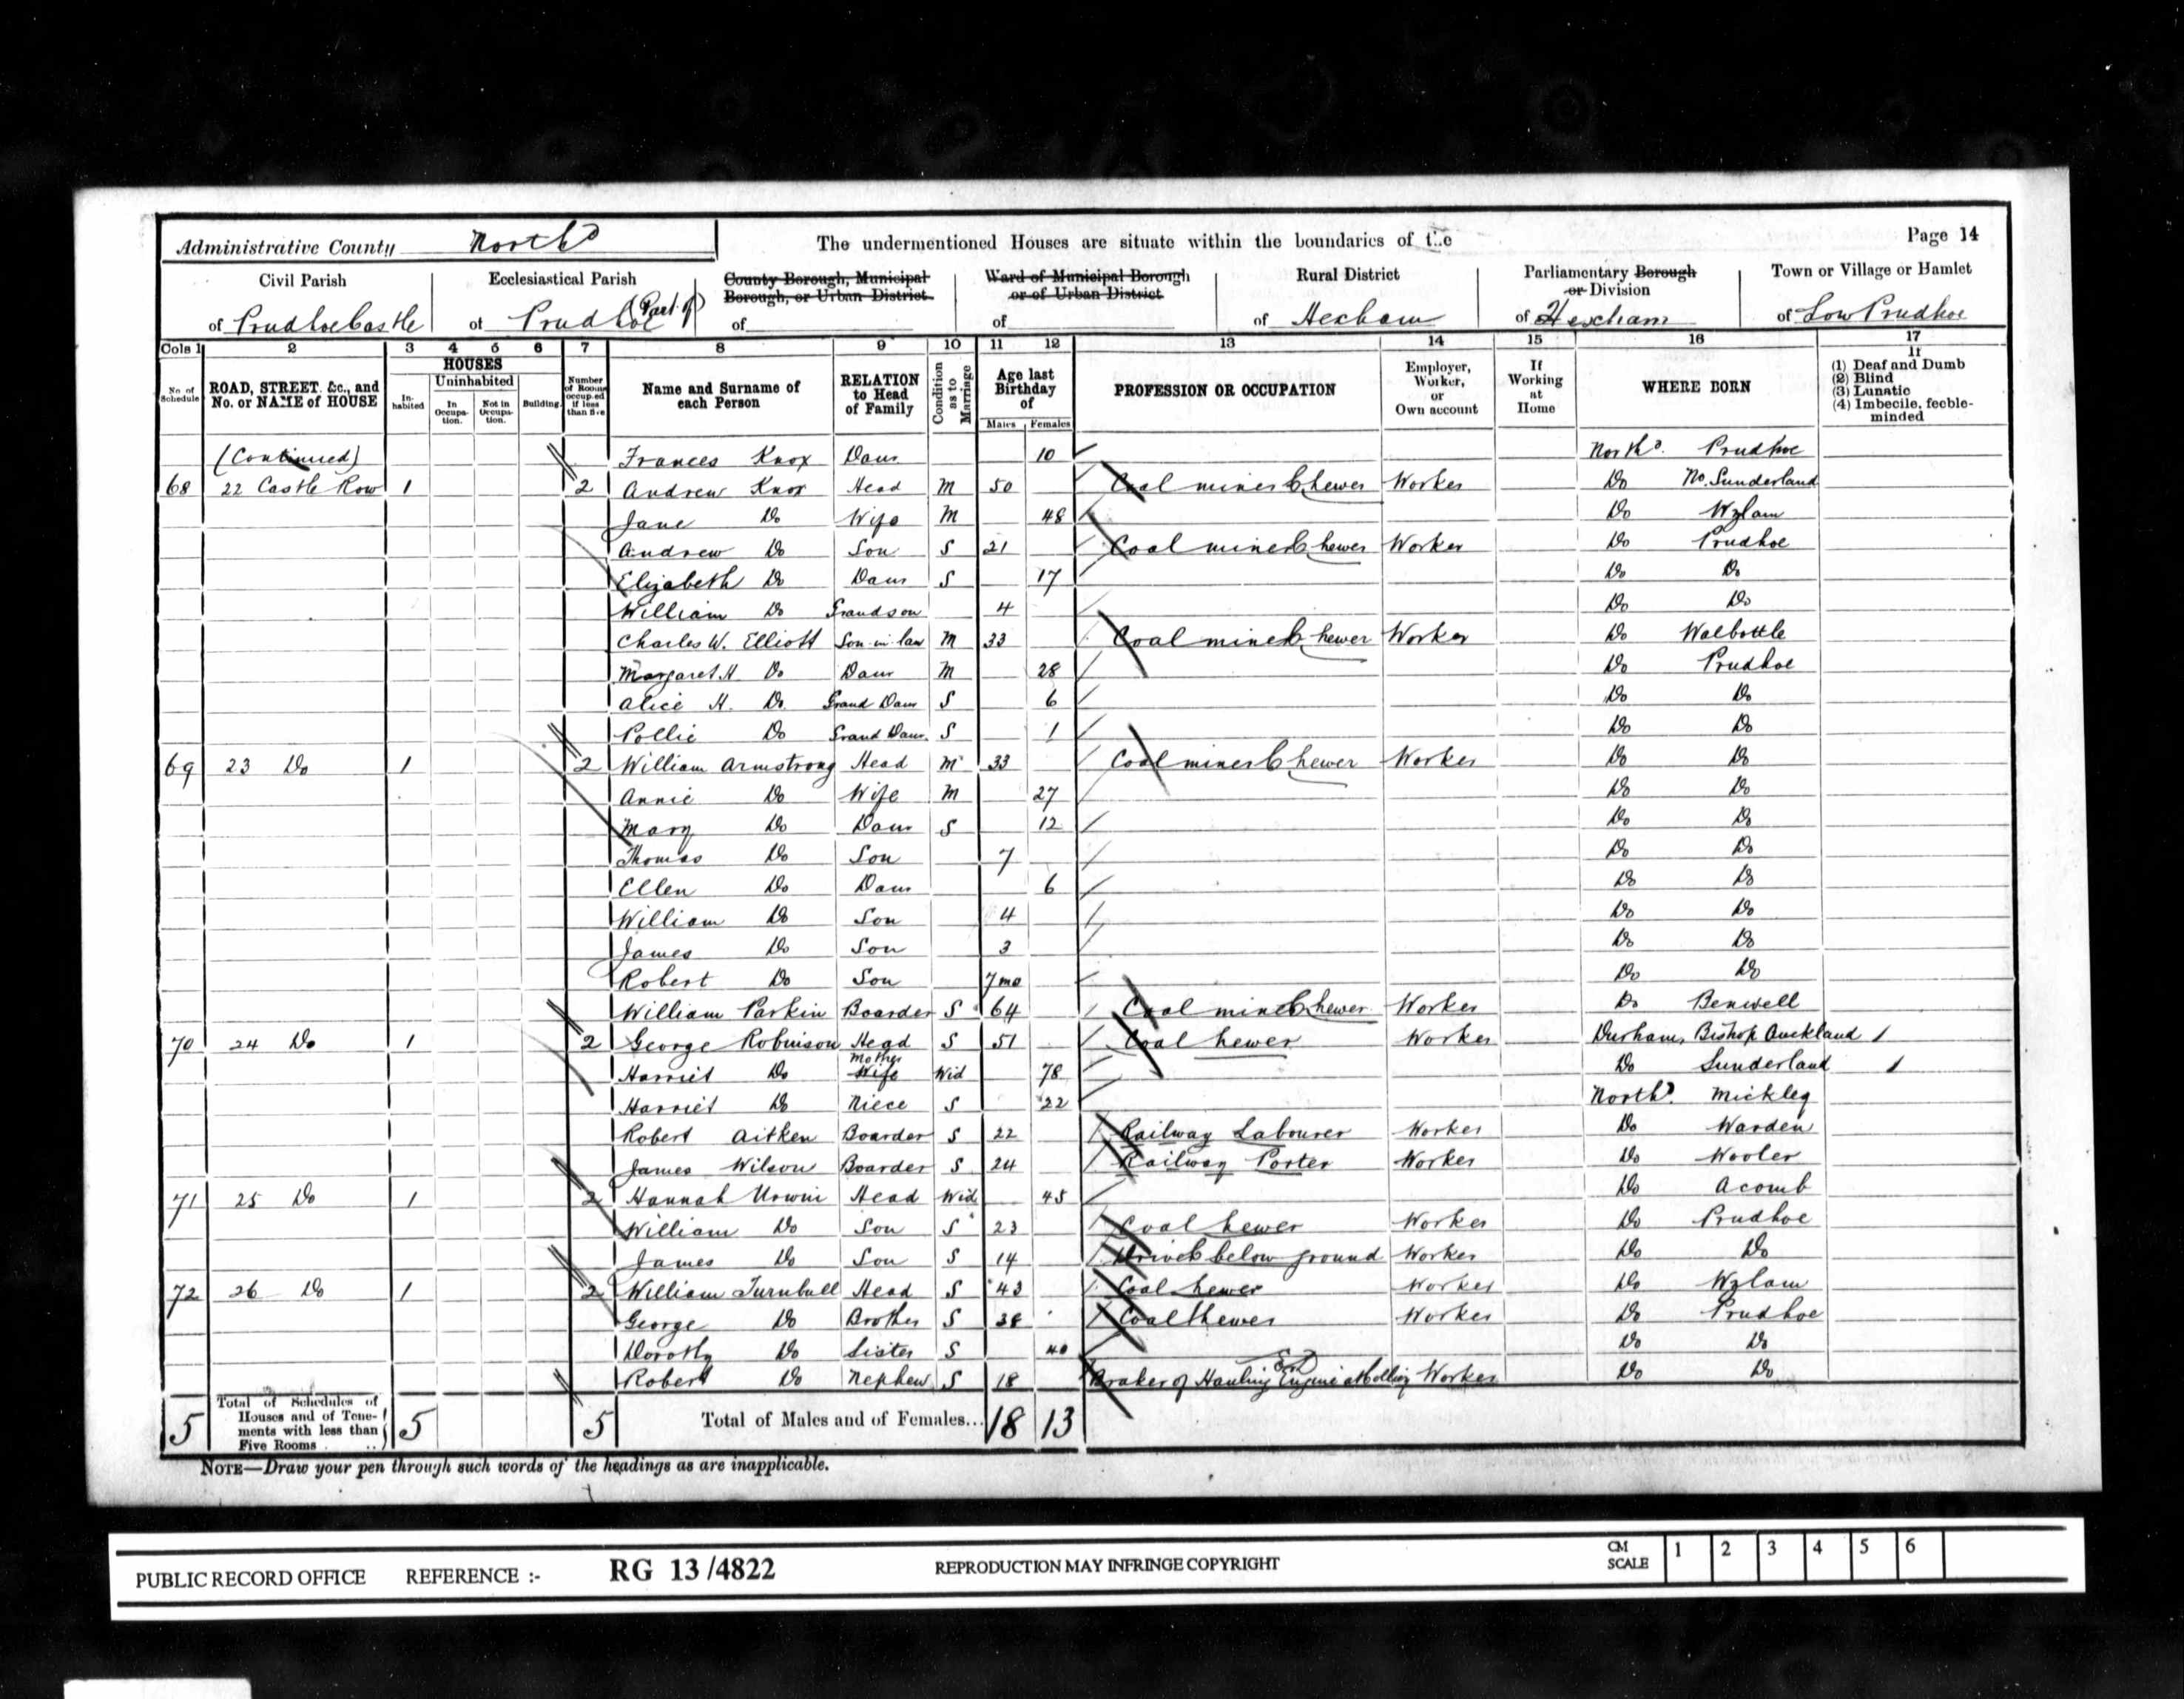 Administrative County North^d The undermentioned Houses are situate within the boundaries of the Page 14
Civil Parish Ecclesiastical Parish County Borough, Municipal Borough, or Urban District Ward of Municipal Borough or of Urban District Rural District Parliamentary Borough or Division Town or Village or Hamlet
of Prudhoe Castle of Prudhoe (Part of) of of of Hexham of Hexham of Low Prudhoe
Cols 1 2 3 4 5 6 7 8 9 10 11 12 13 14 15 16 17
No. of Schedule ROAD, STREET, &c., and No. or NAME of HOUSE HOUSES Inhabited Uninhabited In Occupation. Not in Occupation. Building Number of Rooms occupied if less than five Name and Surname of each Person RELATION to Head of Family Condition as to Marriage Age last Birthday of Males Females PROFESSION OR OCCUPATION Employer, Worker, or Own account If Working at Home WHERE BORN If (1) Deaf and Dumb (2) Blind (3) Lunatic (4) Imbecile, feeble-minded
(Continued) Frances Knox Daur 10 North^d. Prudhoe
68 22 Castle Row 1 2 Andrew Knox Head M 50 Coal miner hewer Worker Do No. Sunderland
Jane Do Wife M 48 Do Wylam
Andrew Do Son S 21 Coal miner hewer Worker Do Prudhoe
Elizabeth Do Daur S 17 Do Do
William Do Grandson 4 Do Do
Charles W. Elliott Son-in-law M 33 Coal miner hewer Worker Do Walbottle
Margaret H Do Daur M 28 Do Prudhoe
Alice H. Do Grand Daur S 6 Do Do
Pollie Do Grand Daur. S 1 Do Do
69 23 Do 1 2 William Armstrong Head M 33 Coal miner hewer Worker Do Do
Annie Do Wife M 27 Do Do
Mary Do Daur S 12 Do Do
Thomas Do Son 7 Do Do
Ellen Do Daur 6 Do Do
William Do Son 4 Do Do
James Do Son 3 Do Do
Robert Do Son 7 mo Do Do
William Parkin Boarder S 64 Coal miner hewer Worker Do Benwell
70 24 Do 1 2 George Robinson Head S 51 Coal hewer Worker Durham, Bishop Auckland 1
Harriet Do Mother Wife Wid 78 Do Sunderland 1
Harriet Do Niece S 22 North^d. Mickley
Robert Aitken Boarder S 22 Railway Labourer Worker Do Warden
James Wilson Boarder S 24 Railway Porter Worker Do Wooler
71 25 Do 1 2 Hannah Urwin Head Wid 45 Do Acomb
William Do Son S 23 Coal hewer Worker Do Prudhoe
James Do Son S 14 Driver below ground Worker Do Do
72 26 Do 1 2 William Turnbull Head S 43 Coal hewer Worker Do Wylam
George Do Brother S 38 Coal hewer Worker Do Prudhoe
Dorothy Do Sister S 40 Do Do
Robert Do Nephew S 18 Braker of Hauling Engine at Colliery Worker Do Do
5 Total of Schedules of Houses and of Tenements with less than Five Rooms 5 5 Total of Males and of Females... 18 13
NOTE—Draw your pen through such words of the headings as are inapplicable.
PUBLIC RECORD OFFICE REFERENCE :- RG 13/4822 REPRODUCTION MAY INFRINGE COPYRIGHT CM SCALE 1 2 3 4 5 6